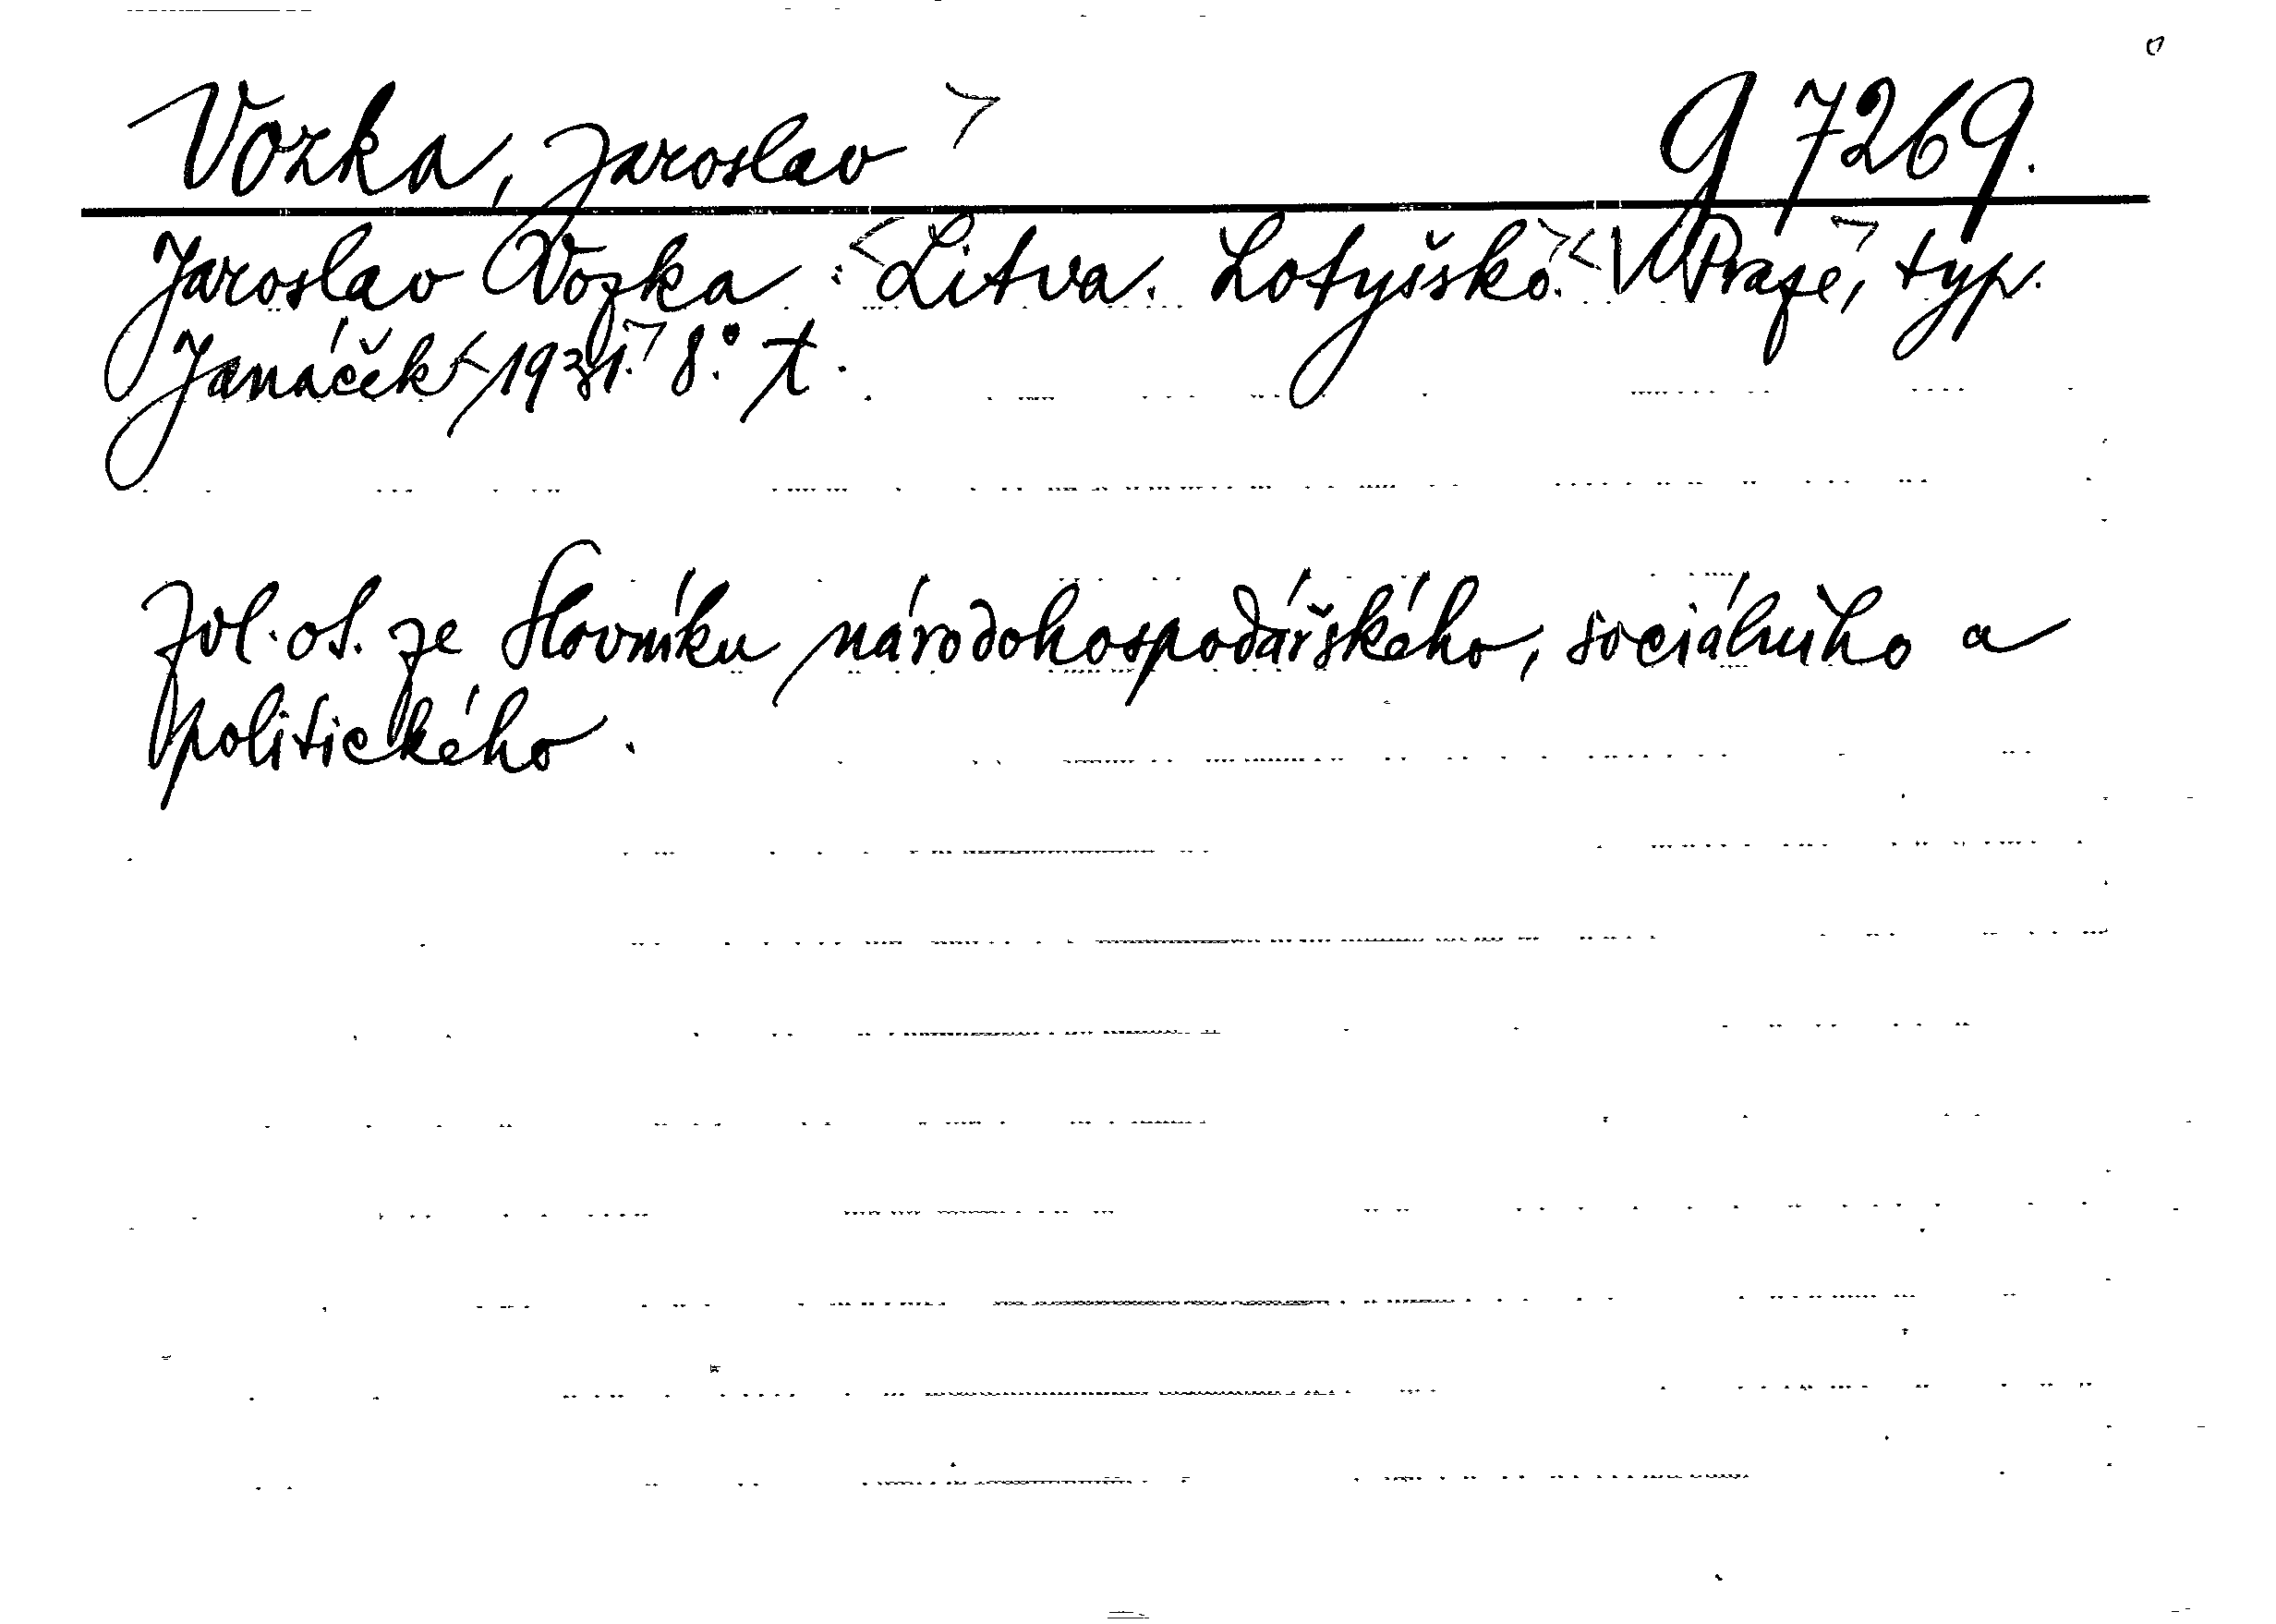 Vozka, Jaroslav g 7269.
Jaroslav Vozka : Litva. Lotyšsko. V Praze, typ.
Janáček 1931. 8°. t.
Zvl. ot. ze Slovníku národohospodářského, sociálního a
politického.